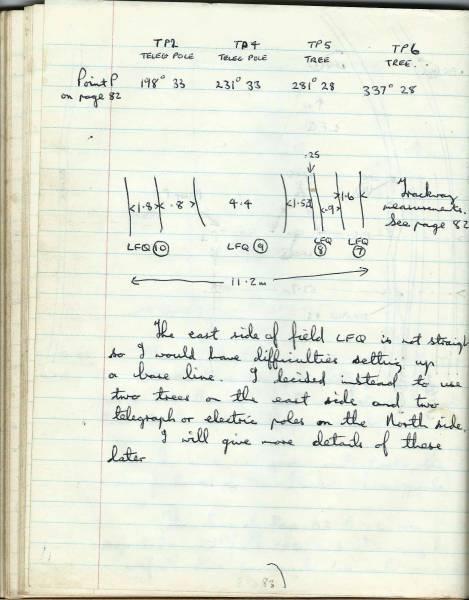 TP2 TP4 TP5 TP6
TELEG POLE TELEG POLE TREE TREE.
Point P 198° 33 231° 33 281° 28 337° 28
on page 82
.25
<1.8> < .8 > 4.4 <1.53 .9> >1.6< Trackway
measurements.
See page 82
LFQ ⑩ LFQ ⑨ LFQ ⑧ LFQ ⑦
11.2m
The east side of field LFQ is not straigh
so I would have difficulties setting up
a base line. I decided instead to use
two trees on the east side and two
telegraph or electric poles on the North side.
I will give more details of these
later
83